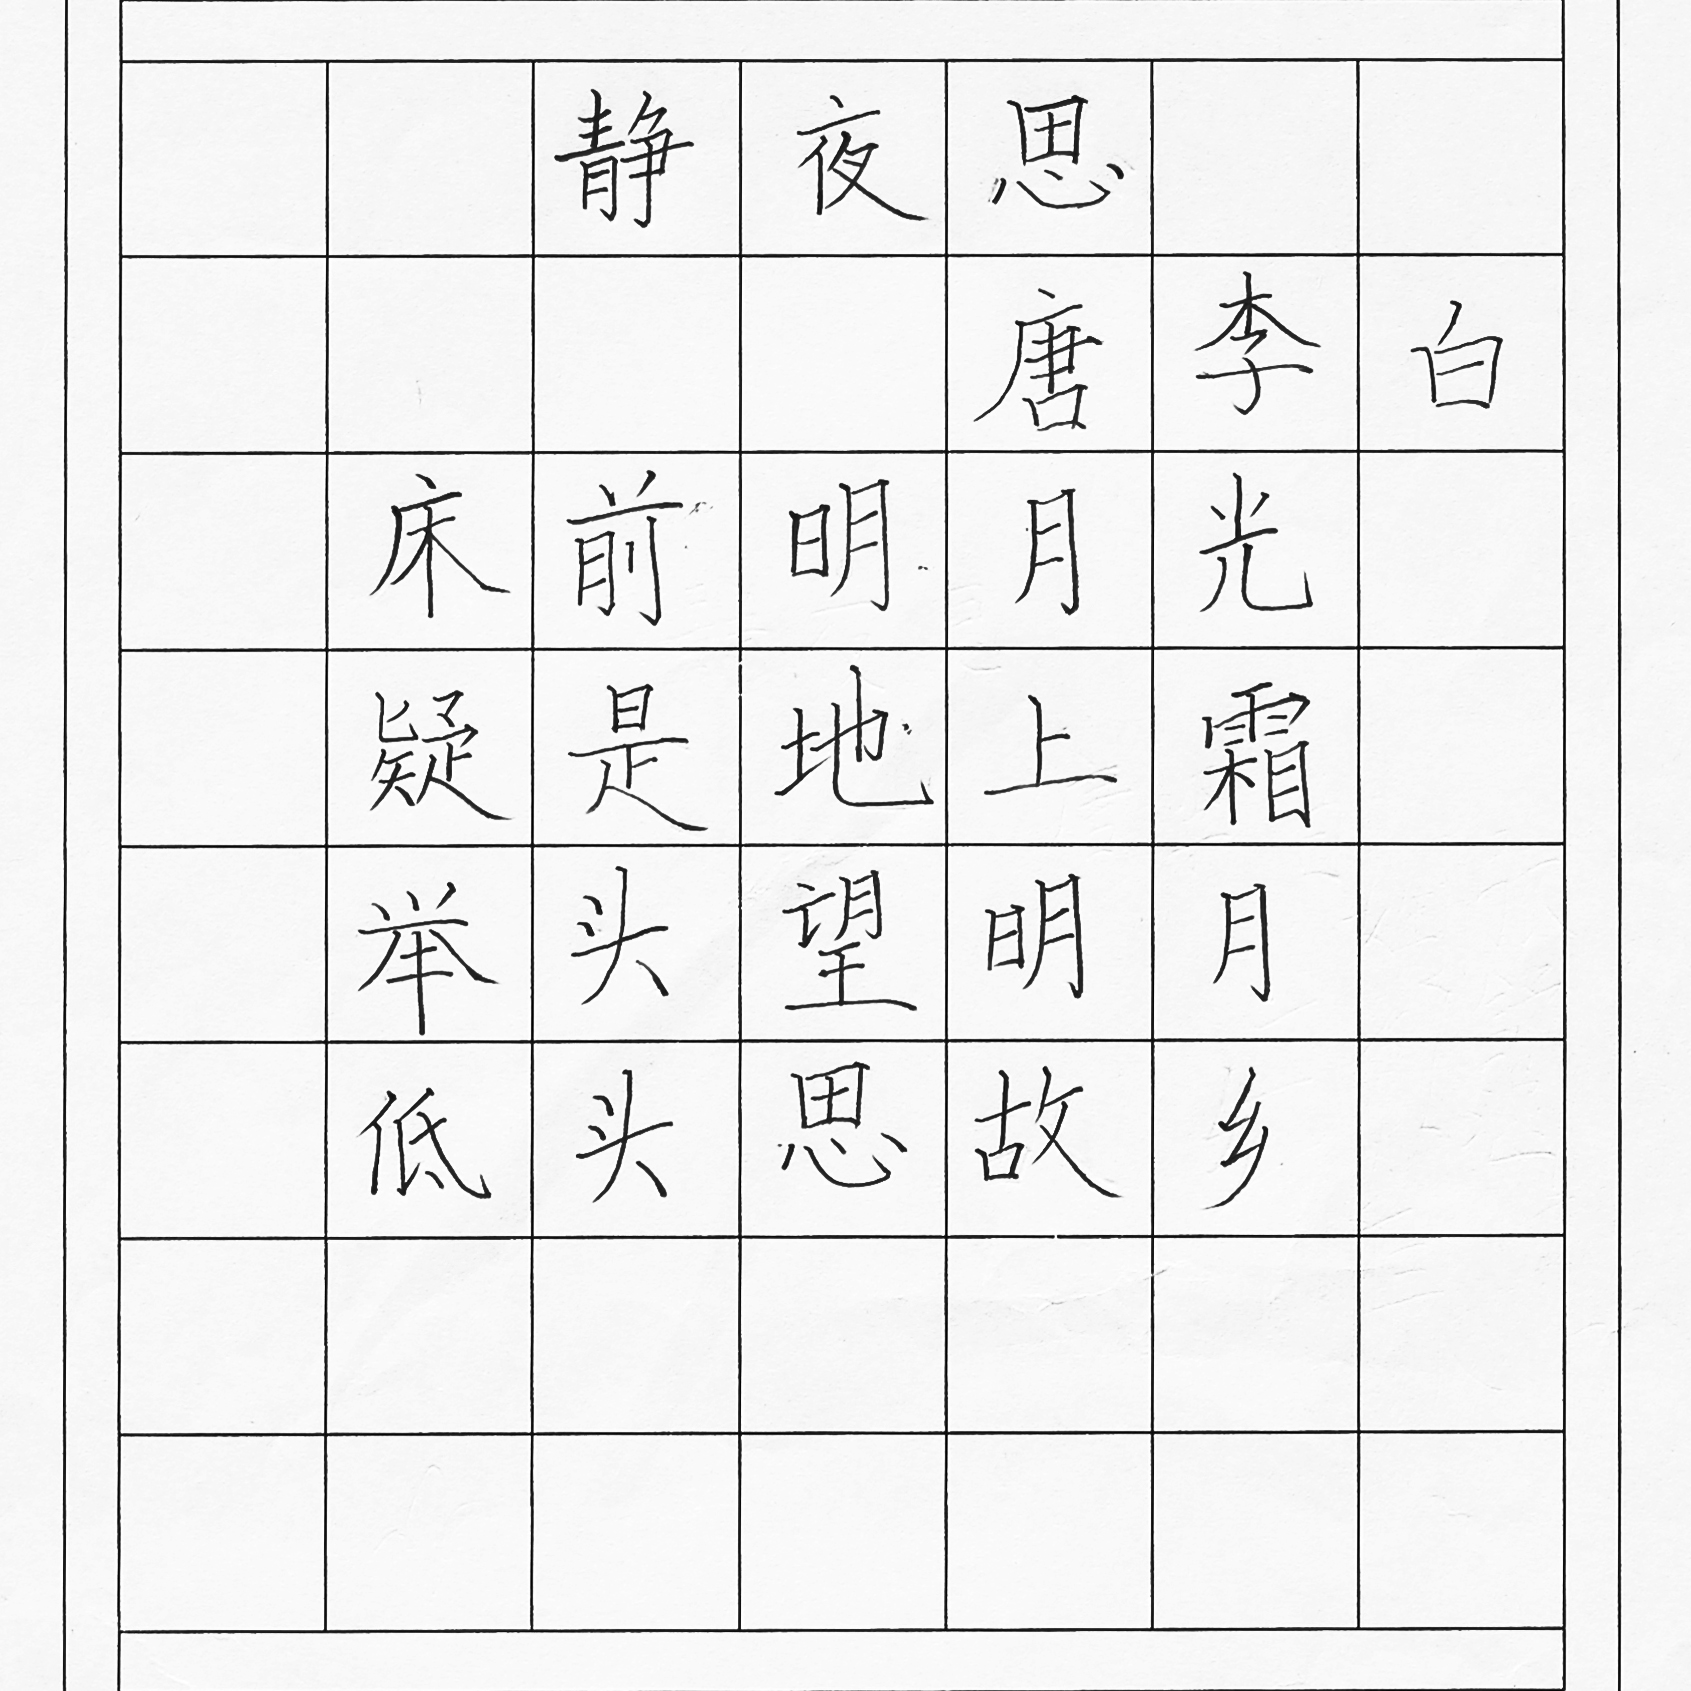 静夜思
唐李白
床前明月光
疑是地上霜
举头望明月
低头思故乡